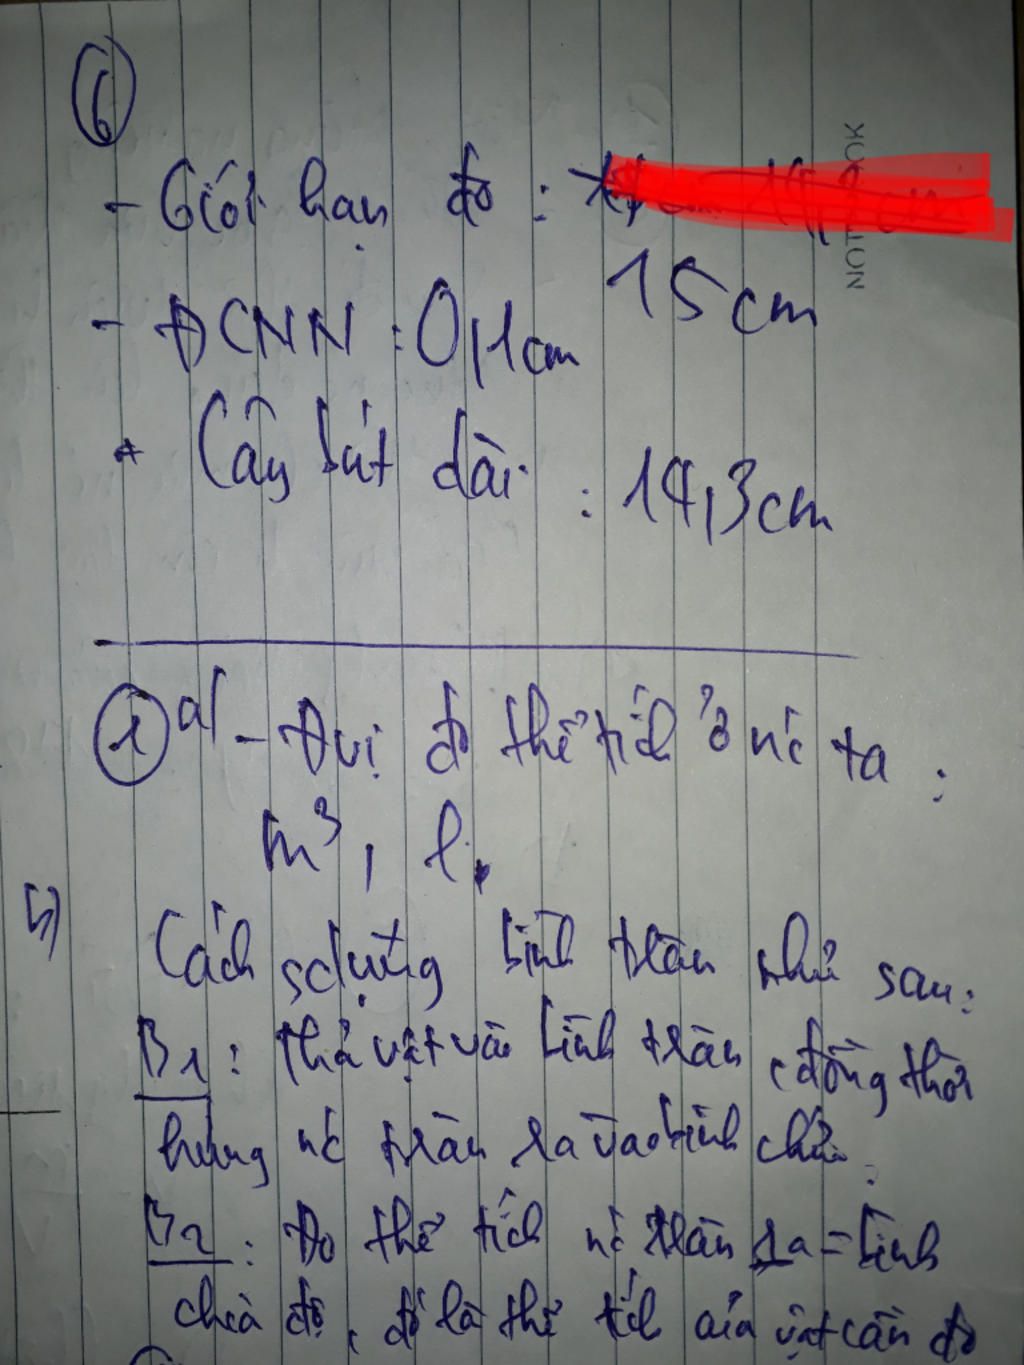 6
- Giới hạn đo :
NOTEBOOK
15cm
- ĐCNN : 0,1cm
* Cây bút dài : 14,3cm
1 a/ - Đvị đo thể tích ở nc ta :
m³, l.
b)
Cách sdụng bình tràn như sau:
B1 : thả vật vào bình tràn, đồng thời
hứng nc tràn ra vào bình chứa.
B2 : Đo thể tích nc tràn ra = bình
chia độ, đó là thể tích của vật cần đo